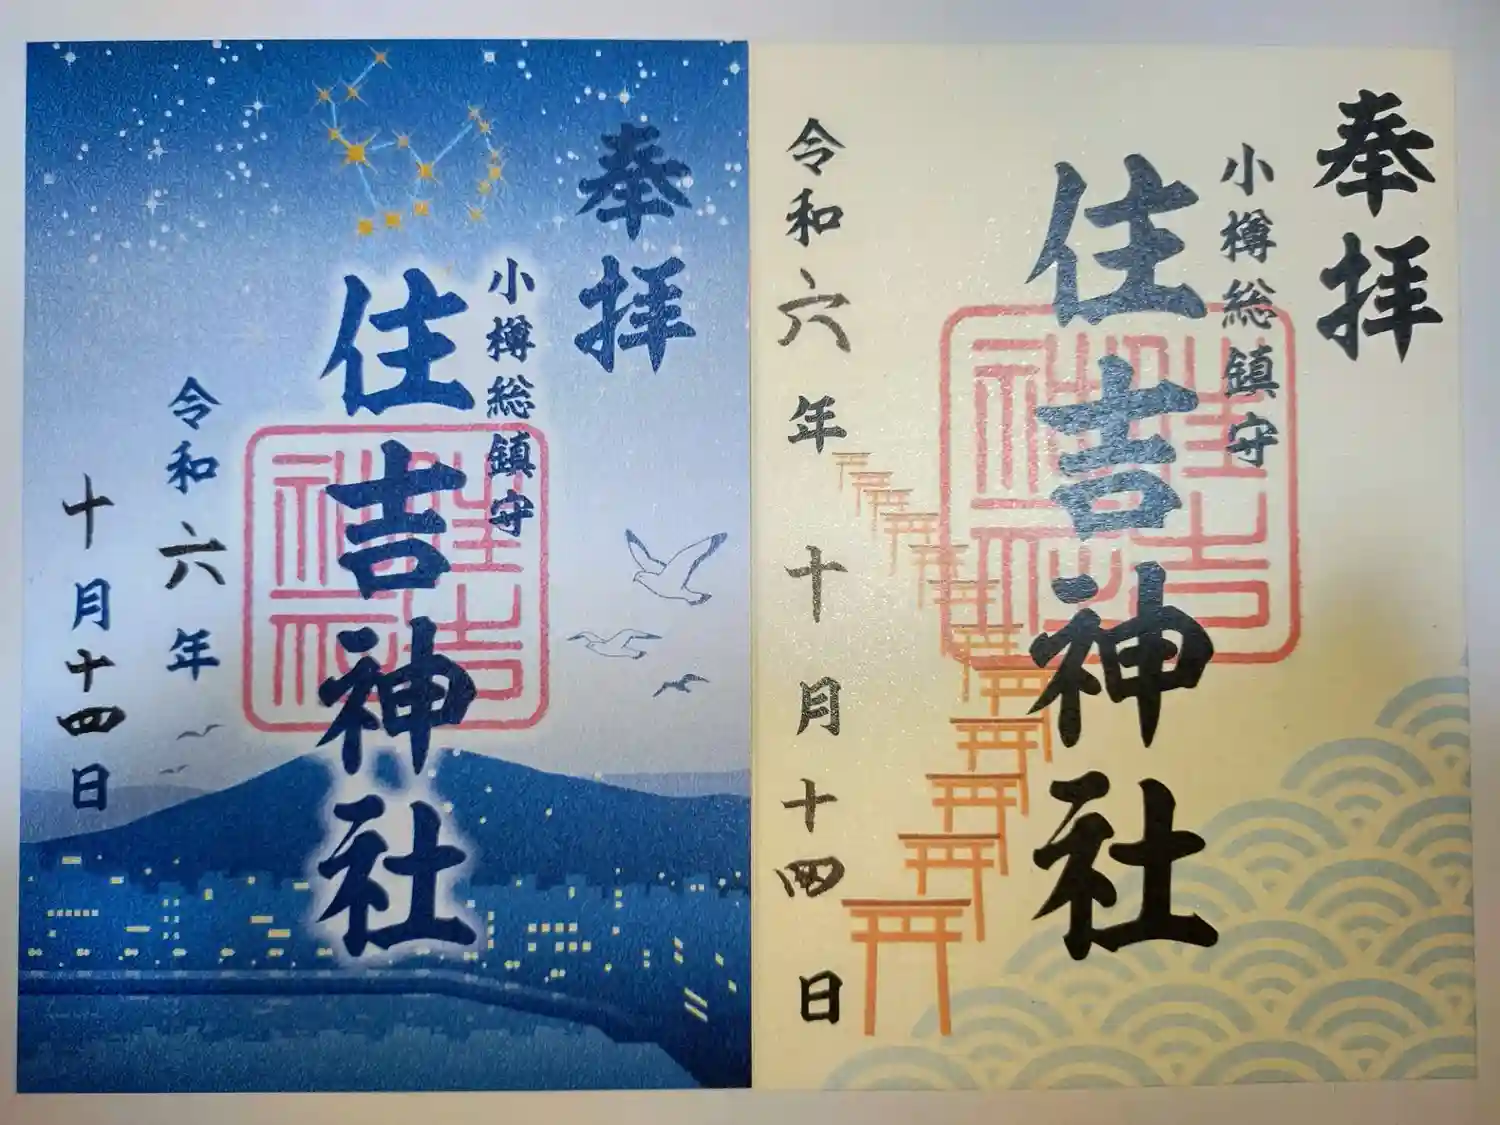 奉拝
小樽総鎮守
住吉神社
令和六年
十月十四日
奉拝
小樽総鎮守
住吉神社
令和六年十月十四日
住吉
神社
住吉
神社